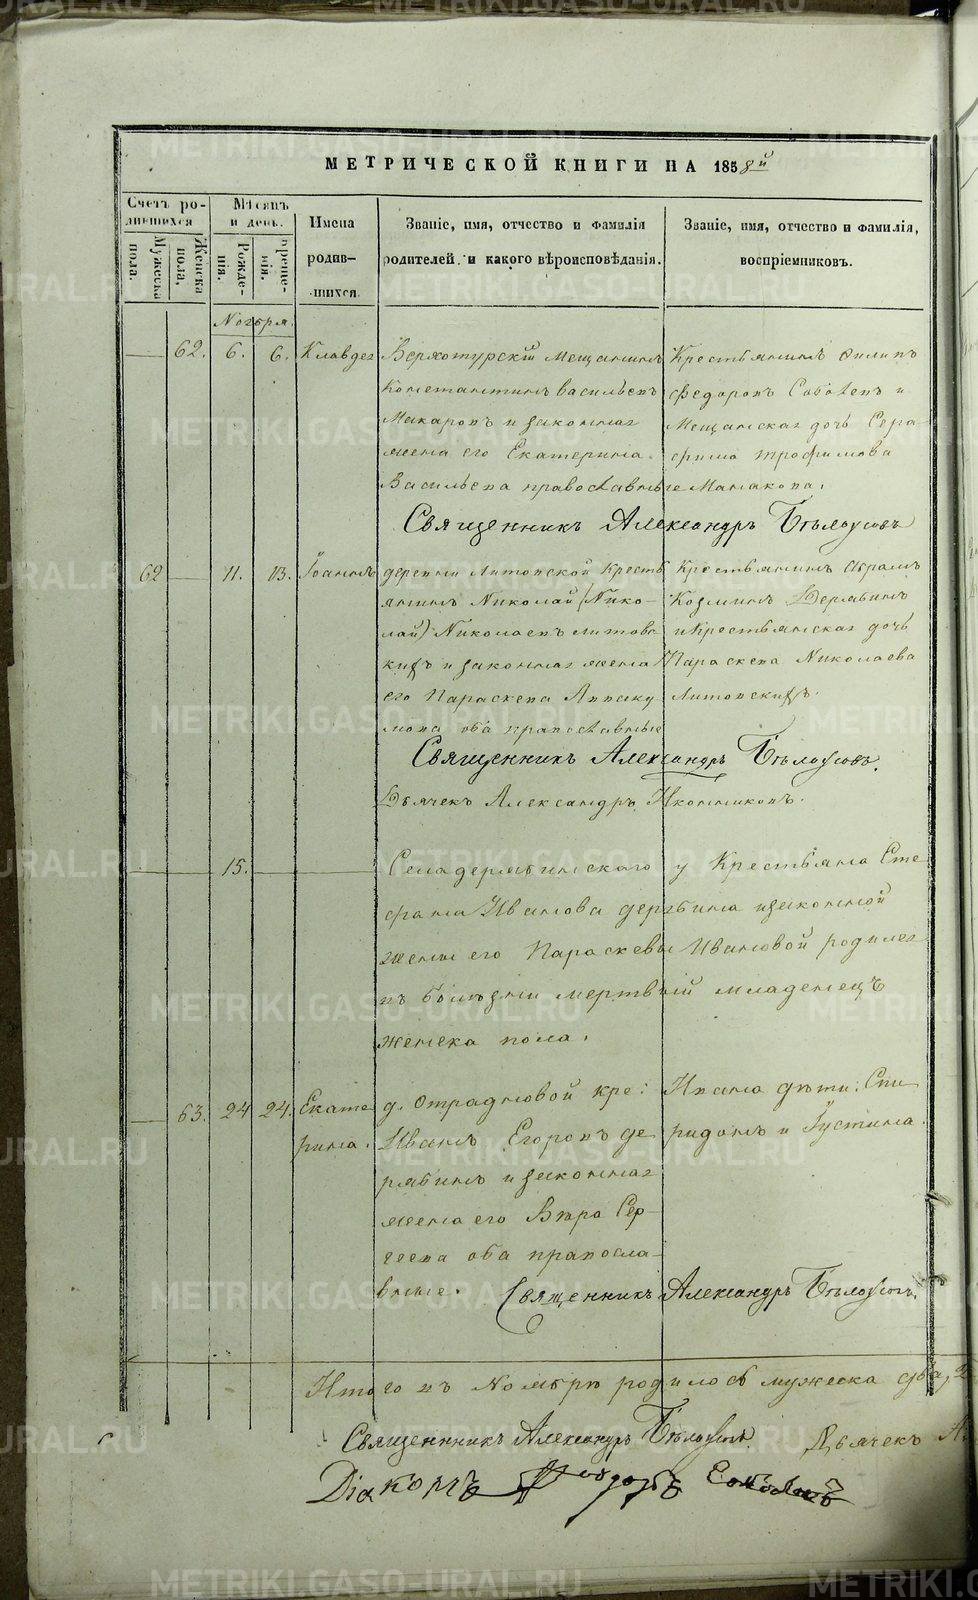 МЕТРИЧЕСКОЙ КНИГИ НА 1858й
Счетъ ро-
дившихся
Мужеска пола.
Женска пола,
Мѣсяцъ
и день.
Рожде-
нія.
Креще-
нія.
Имена
родив-
шихся
Званіе, имя, отчество и фамилія
родителей, и какого вѣроисповѣданія.
Званіе, имя, отчество и фамилія,
воспріемниковъ.
Ноября.
62. 6. 6. Клавдея
Верхотурскій Мещанинъ
Константинъ Васильевъ
Макаровъ и законная
жена его Екатерина
Васильева православные
Крестьянинъ Филипъ
Федоровъ и
Мещанская дочь Сера-
фима Трофимова
Священникъ Александръ Бѣлоусовъ
62 11. 13. Іоаннъ
деревни Литовской Кресть
янинъ Николай (Нико-
лай) Николаевъ Литовс
кихъ и законная жена
его Параскева Авваку
мова оба православные
Крестьянинъ Абрамъ
Козминъ Дерябинъ
и Крестьянская дочь
Параскева Николаева
Литовскихъ.
Священникъ Александръ Бѣлоусовъ.
Дьячекъ Александръ Иконниковъ.
15.
Села дерябинскаго у Крестьяна Сте
фана Иванова дерябина и законной
жены его Параскевы Ивановой родился
въ болѣзни мертвый младенецъ
женска пола.
63. 24 24. Екате
рина.
д. Отрадновой кре:
Иванъ Егоровъ де
рябинъ и законная
жена его Вѣра Сер-
геева оба правосла-
вные.
Ивана дѣти: Спи
ридонъ и Іустина.
Священникъ Александръ Бѣлоусовъ.
Итого въ Ноябрѣ родилось мужеска два,
Священникъ Александръ Бѣлоусовъ. Дьячекъ
Діаконъ Ѳеодоръ
METRIKI.GASO-URAL.RU